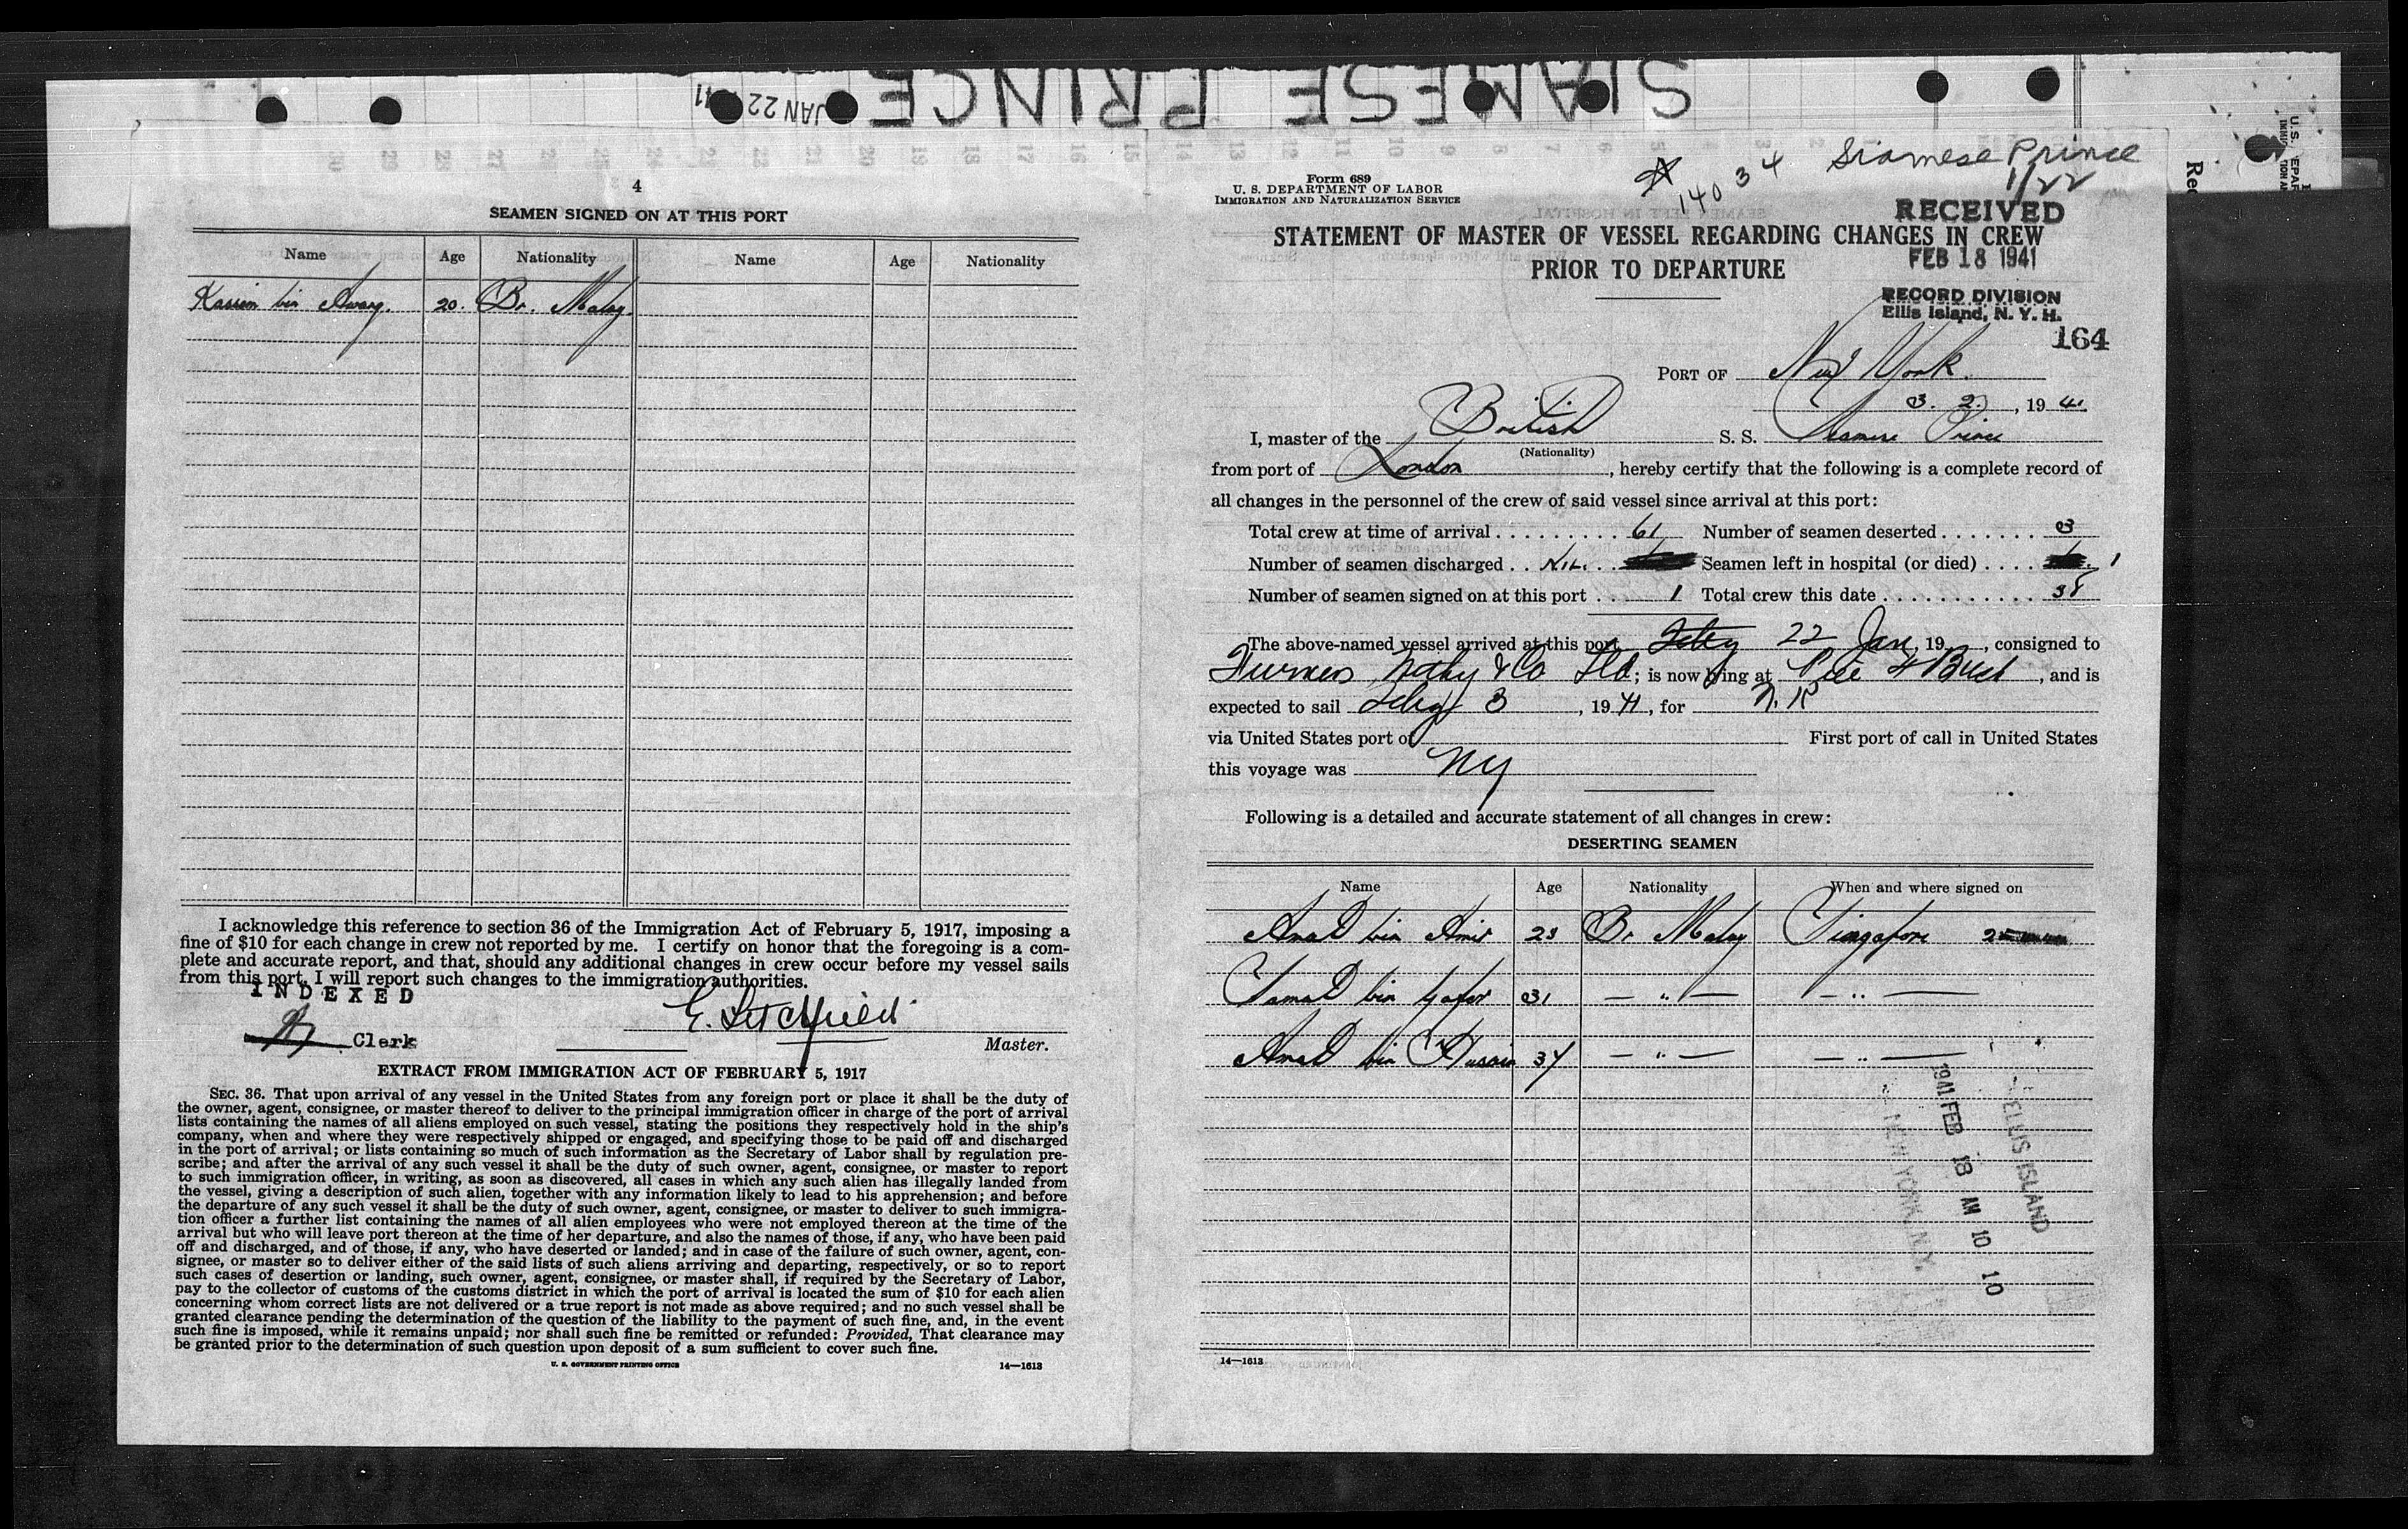 SIAMESE PRINCE
JAN 22 41
4
SEAMEN SIGNED ON AT THIS PORT
Name Age Nationality Name Age Nationality
Kassim bin Awang. 20. Br. Malay.
I acknowledge this reference to section 36 of the Immigration Act of February 5, 1917, imposing a
fine of $10 for each change in crew not reported by me. I certify on honor that the foregoing is a com-
plete and accurate report, and that, should any additional changes in crew occur before my vessel sails
from this port, I will report such changes to the immigration authorities.
INDEXED
Clerk
E. Litchfield
Master.
EXTRACT FROM IMMIGRATION ACT OF FEBRUARY 5, 1917
SEC. 36. That upon arrival of any vessel in the United States from any foreign port or place it shall be the duty of
the owner, agent, consignee, or master thereof to deliver to the principal immigration officer in charge of the port of arrival
lists containing the names of all aliens employed on such vessel, stating the positions they respectively hold in the ship's
company, when and where they were respectively shipped or engaged, and specifying those to be paid off and discharged
in the port of arrival; or lists containing so much of such information as the Secretary of Labor shall by regulation pre-
scribe; and after the arrival of any such vessel it shall be the duty of such owner, agent, consignee, or master to report
to such immigration officer, in writing, as soon as discovered, all cases in which any such alien has illegally landed from
the vessel, giving a description of such alien, together with any information likely to lead to his apprehension; and before
the departure of any such vessel it shall be the duty of such owner, agent, consignee, or master to deliver to such immigra-
tion officer a further list containing the names of all alien employees who were not employed thereon at the time of the
arrival but who will leave port thereon at the time of her departure, and also the names of those, if any, who have been paid
off and discharged, and of those, if any, who have deserted or landed; and in case of the failure of such owner, agent, con-
signee, or master so to deliver either of the said lists of such aliens arriving and departing, respectively, or so to report
such cases of desertion or landing, such owner, agent, consignee, or master shall, if required by the Secretary of Labor,
pay to the collector of customs of the customs district in which the port of arrival is located the sum of $10 for each alien
concerning whom correct lists are not delivered or a true report is not made as above required; and no such vessel shall be
granted clearance pending the determination of the question of the liability to the payment of such fine, and, in the event
such fine is imposed, while it remains unpaid; nor shall such fine be remitted or refunded: Provided, That clearance may
be granted prior to the determination of such question upon deposit of a sum sufficient to cover such fine.
U. S. GOVERNMENT PRINTING OFFICE 14—1613
Form 689
U. S. DEPARTMENT OF LABOR
IMMIGRATION AND NATURALIZATION SERVICE
14034
Siamese Prince
1/22
RECEIVED
STATEMENT OF MASTER OF VESSEL REGARDING CHANGES IN CREW
FEB 18 1941
PRIOR TO DEPARTURE
RECORD DIVISION
Ellis Island, N. Y. H.
164
PORT OF New York.
3. 2., 19 41.
I, master of the British S. S. Siamese Prince
(Nationality)
from port of London, hereby certify that the following is a complete record of
all changes in the personnel of the crew of said vessel since arrival at this port:
Total crew at time of arrival 61 Number of seamen deserted 3
Number of seamen discharged Nil. Seamen left in hospital (or died) 1
Number of seamen signed on at this port 1 Total crew this date 58
The above-named vessel arrived at this port 22 Jan, 19, consigned to
Furness Withy & Co Ltd; is now lying at Pier 4 Bush, and is
expected to sail Feby 3, 1941, for
via United States port of First port of call in United States
this voyage was NY
Following is a detailed and accurate statement of all changes in crew:
DESERTING SEAMEN
Name Age Nationality When and where signed on
Amad bin Amit 23 Br Malay Singapore
Samad bin Gafor 31 — " — — " —
Amad bin Husain 34 — " — — " —
ELLIS ISLAND
1941 FEB 18 AM 10 10
NEW YORK, N.Y.
14—1613